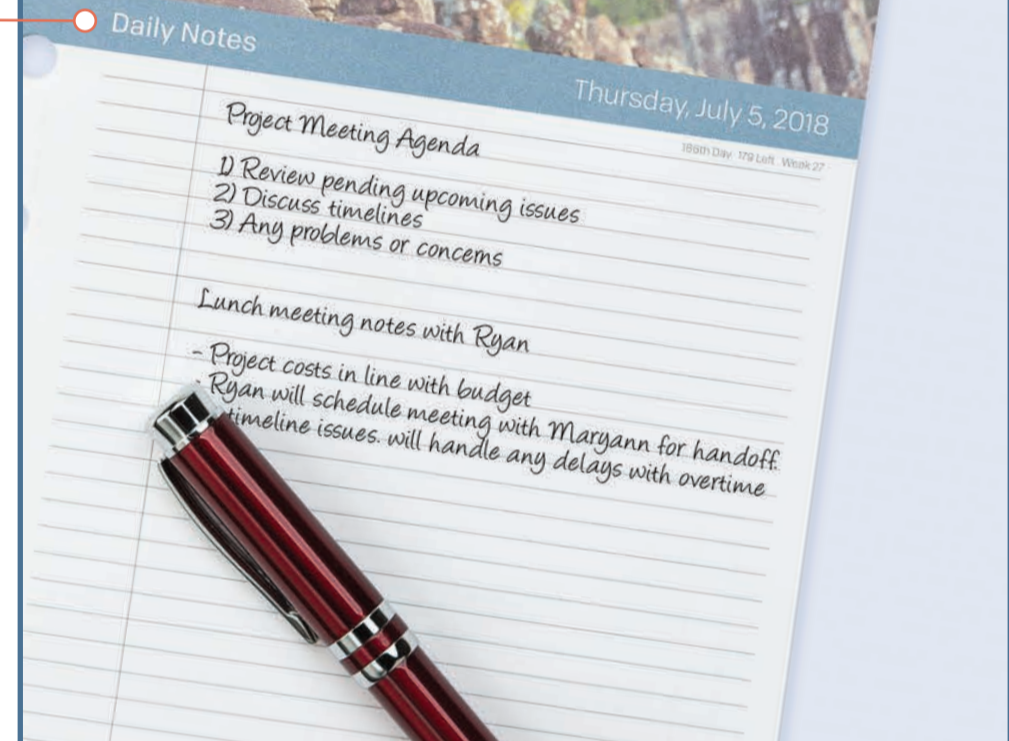 Daily Notes
Thursday, July 5, 2018
186th Day 179 Left Week 27
Project Meeting Agenda
1) Review pending upcoming issues
2) Discuss timelines
3) Any problems or concerns
Lunch meeting notes with Ryan
- Project costs in line with budget
- Ryan will schedule meeting with Maryann for handoff.
timeline issues. will handle any delays with overtime